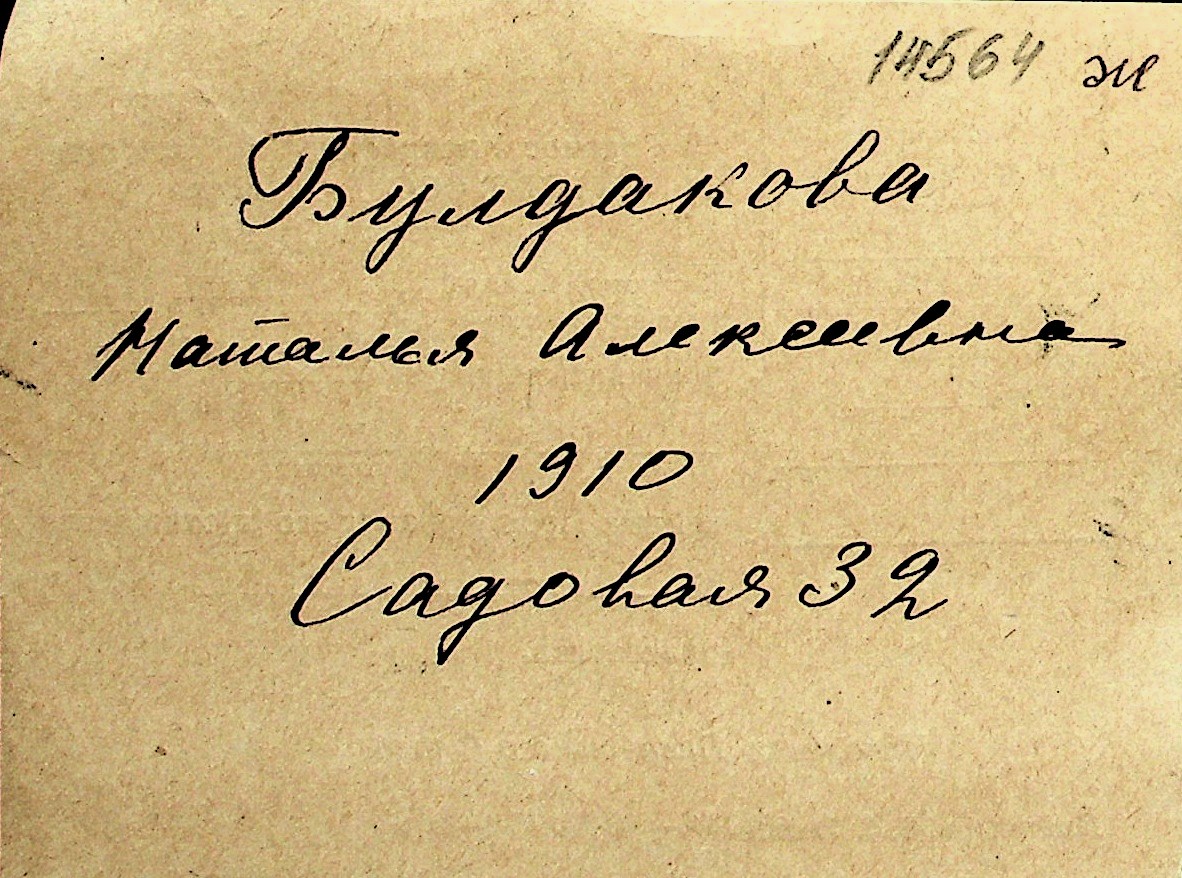 14564 ж
Булдакова
Наталья Алексеевна
1910
Садовая 32